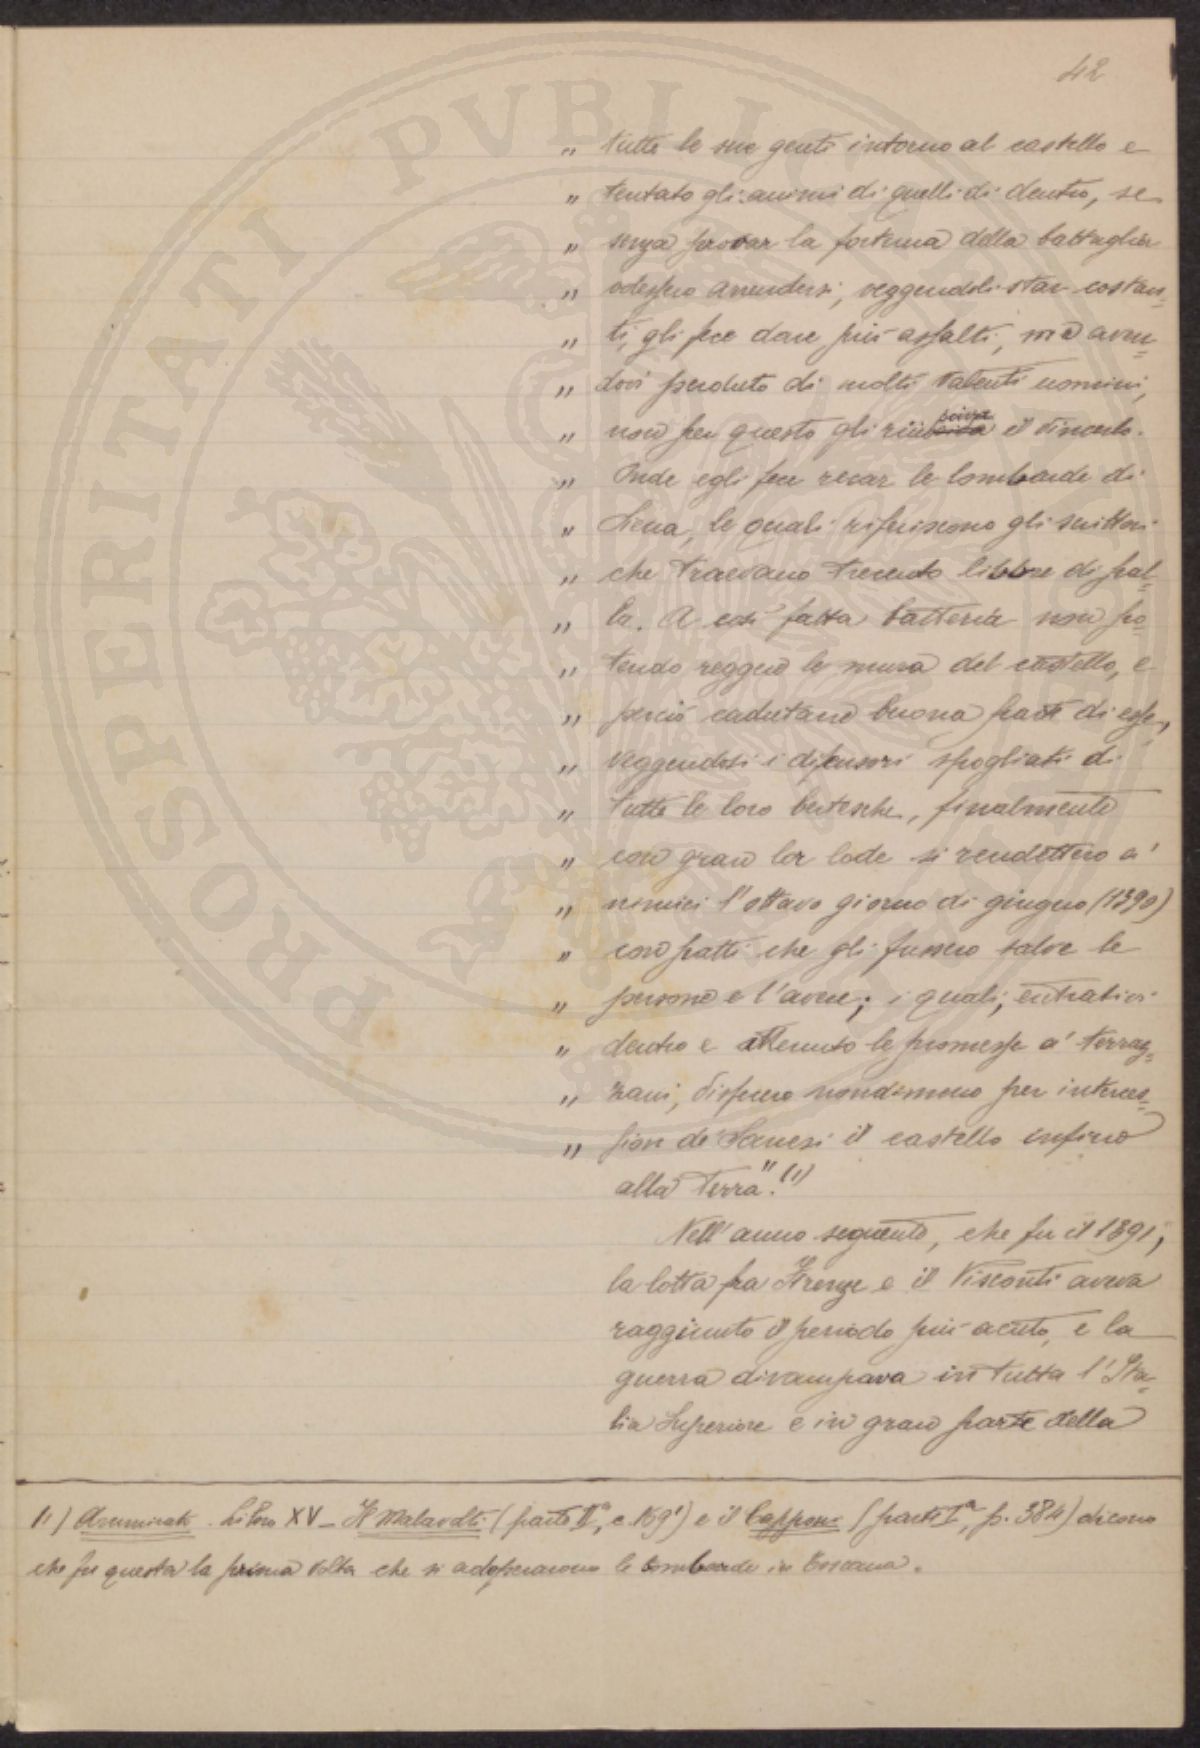 42
„ tutte le sue genti intorno al castello e
„ tentato gli animi di quelli di dentro, se
„ senza provar la fortuna della battaglia
„ volessero arrendersi, veggendoli star costan=
„ ti, gli fece dare più assalti, ma aven=
„ dovi perduto di molti valenti uomini,
„ non per questo gli riusciva il vincerlo.
„ Onde egli fece recar le bombarde di
„ Siena, le quali riferiscono gli scrittori
„ che traevano trecento libbre di pal=
„ la. A così fatta batteria non po=
„ tendo reggere le mura del castello, e
„ perciò cadutane buona parte di esse,
„ veggendosi i difensori spogliati di
„ tutte le loro bertesche, finalmente
„ con gran lor lode si rendettero a'
„ nemici l'ottavo giorno di giugno (1390)
„ con patti che gli fussero salve le
„ persone e l'avere; i quali, entrativi
„ dentro e attenuto le promesse a' terraz=
„ zani, disfecero nondimeno per interces=
„ sion de' Sanesi il castello infino
alla terra". (1)
Nell'anno seguente, che fu il 1391,
la lotta fra Firenze e il Visconti aveva
raggiunto il periodo più acuto, e la
guerra divampava in tutta l'Ita=
lia Superiore e in gran parte della
(1) Ammirato. Libro XV _ Il Malavolti (parte IIª, c. 159¹) e il Capponi (parte Iª, p. 384) dicono
che fu questa la prima volta che si adoperarono le bombarde in Toscana.
PROSPERITATI PVBLICAE